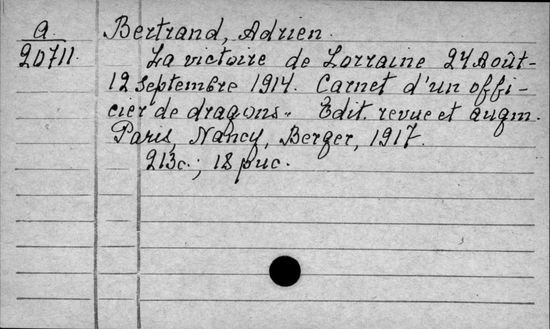 a
20711.
Bertrand, Adrien.
La victoire de Lorraine 24 Août-
12 septembre 1914. Carnet d'un offi-
cier de dragons. Edit. revue et augm.
Paris, Nancy, Berger, 1917.
213c.; 18 рис.